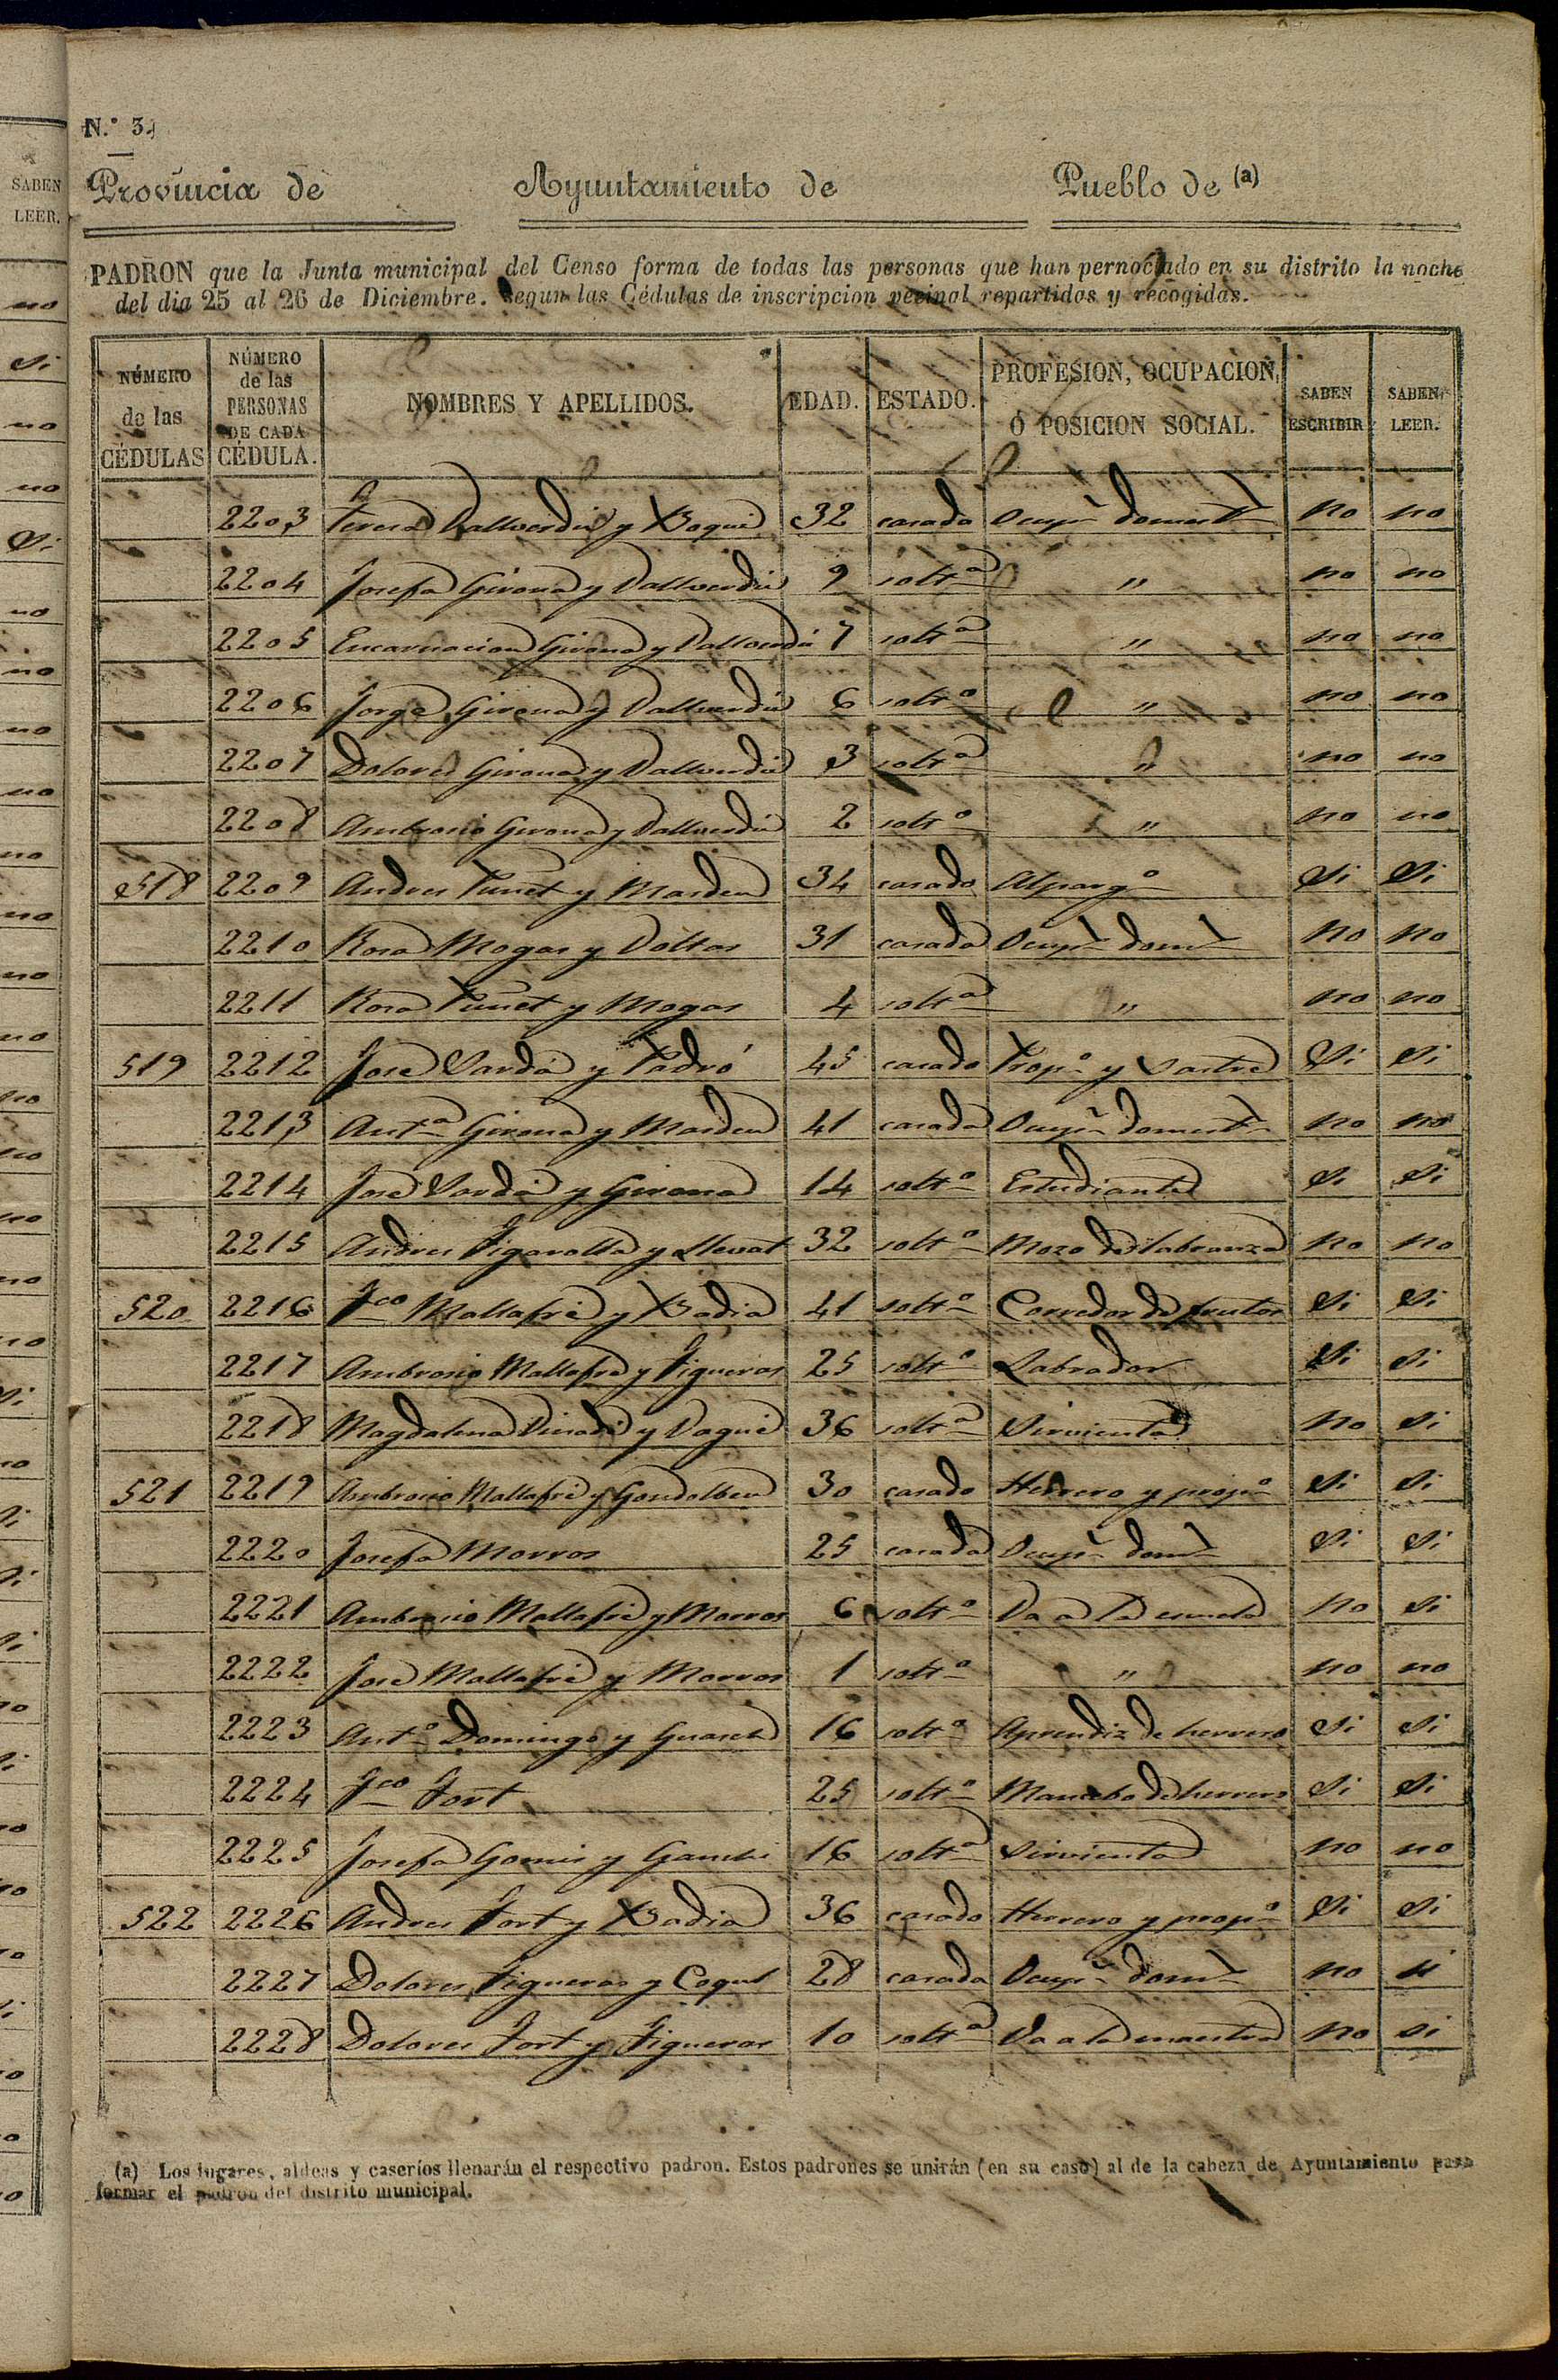 N.º 34
Provincia de Ayuntamiento de Pueblo de (a)
PADRON que la Junta municipal del Censo forma de todas las personas que han pernoctado en su distrito la noche
del dia 25 al 26 de Diciembre, segun las Cédulas de inscripcion vecinal repartidas y recogidas.
NÚMERO de las CÉDULAS NÚMERO de las PERSONAS DE CADA CÉDULA. NOMBRES Y APELLIDOS. EDAD. ESTADO. PROFESION, OCUPACION, Ó POSICION SOCIAL. SABEN ESCRIBIR SABEN LEER.
2203 Teresa Vallverdú y Boqué 32 casada Ocupn domest no no
2204 Josefa Girona y Vallverdú 9 solta " no no
2205 Encarnacion Girona y Vallverdú 7 solta " no no
2206 Jorge Girona y Vallverdú 6 solto " no no
2207 Dolores Girona y Vallverdú 3 solta " no no
2208 Ambrosio Girona y Vallverdú 2 solto " no no
518 2209 Andres Puñet y Mardeu 34 casado Alpargo Si Si
2210 Rosa Mogas y Voltas 31 casada Ocupn domt no no
2211 Rosa Puñet y Mogas 4 solta " no no
519 2212 José Sardá y Padró 45 casado Propo y Sastre Si Si
2213 Anta Girona y Mardeu 41 casada Ocupn domesta no no
2214 José Sardá y Girona 14 solto Estudiante Si Si
2215 Andres Figarolla y Llevat 32 solto Mozo de labranza no no
520 2216 Fco Mallafré y Badia 41 solto Corredor de frutos Si Si
2217 Ambrosio Mallafré y Figueras 25 solto Labrador Si Si
2218 Magdalena y Vaqué 36 solta Sirvienta no Si
521 2219 Ambrosio Mallafré y 30 casado Herrero y propo Si Si
2220 Josefa Morros 25 casada Ocupn domt Si Si
2221 Ambrosio Mallafré y Morros 6 solto Va a la escuela no Si
2222 José Mallafré y Morros 1 solto " no no
2223 Anto Domingo y Guasch 16 solto Aprendiz de herrero Si Si
2224 Fco Fort 25 solto Mancebo de herrero Si Si
2225 Josefa Gomis y 16 solta Sirvienta no no
522 2226 Andres Fort y Badia 36 casado Herrero y propo Si Si
2227 Dolores Figueras y 28 casada Ocupn domt no si
2228 Dolores Fort y Figueras 10 solta Va a la maestra no si
(a) Los lugares, aldeas y caseríos llenarán el respectivo padron. Estos padrones se unirán (en su caso) al de la cabeza de Ayuntamiento para
formar el padron del distrito municipal.